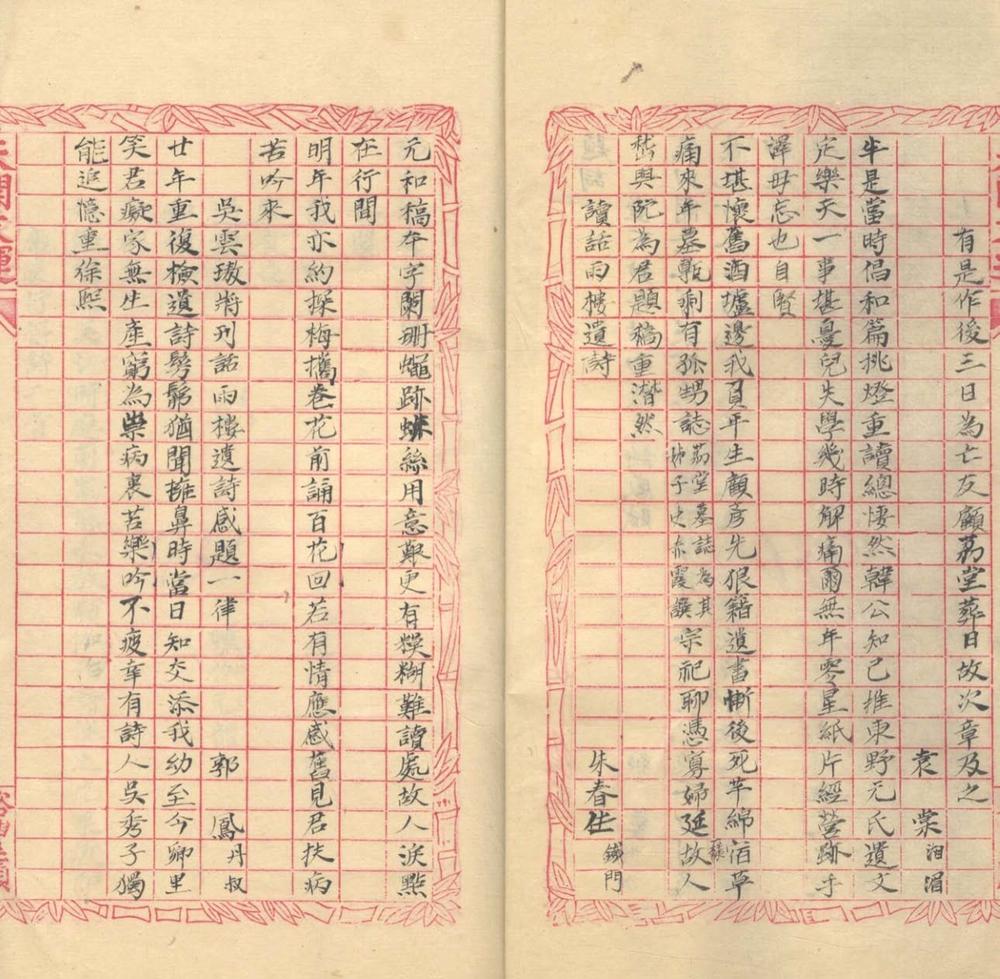 有是作後三日為亡友顧蒻堂葬日故次章及之
袁棠湘湄
半是當時倡和篇挑燈重讀總悽然韓公知己推東野元氏遺文
定樂天一事堪憂兒失學幾時解痛爾無年零星紙片經營跡手
澤毋忘也自賢
不堪懷舊酒壚邊我負平生顧彥先狠籍遺書慚後死芊綿宿草
痛來年墓甎剩有孤甥誌蒻堂墓誌為其
姊子史赤霞譔宗祀聊憑寡婦延故人
嵇與阮為君題稿重潸然
讀話雨樓遺詩
朱春生鐵門
元和稿本字闌珊蠅跡蛛絲用意艱更有模糊難讀處故人淚點
在行間
明年我亦約探梅攜卷花前誦百花回若有情應感舊見君扶病
苦吟來
吳雲璈將刊話雨樓遺詩感題一律
郭鳳丹叔
廿年重復檢遺詩髣髴猶聞擁鼻時當日知交添我幼至今鄉里
笑君癡家無生產窮為祟病裏苦樂吟不疲幸有詩人吳秀子獨
能追憶重徐熙